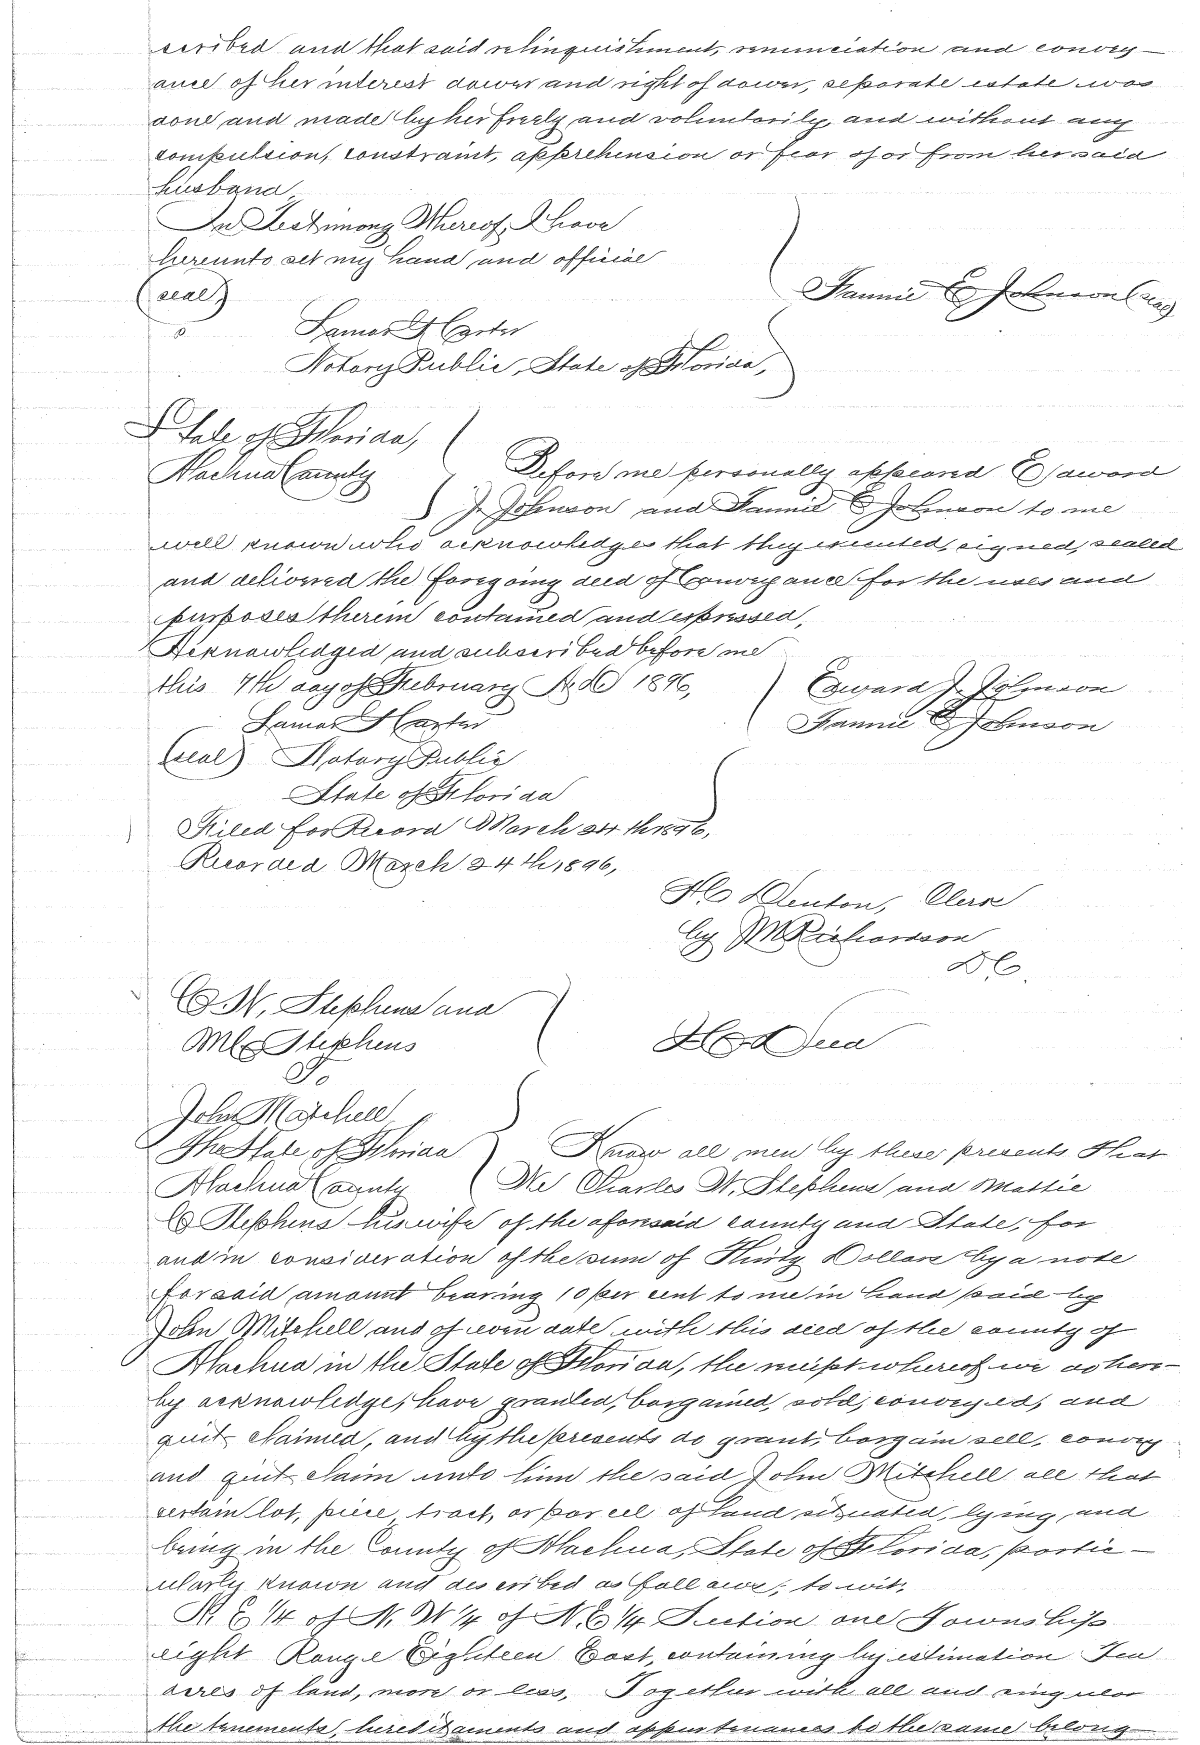 scribed and that said relinquishment, renunciation and convey-
ance of her interest dower and right of dower, separate estate was
done and made by her freely and voluntarily, and without any
compulsion, constraint, apprehension or fear of or from her said
husband
In Testimony Whereof, I have
hereunto set my hand and official
(seal)
Fannie E Johnson (seal)
Lamar Carter
Notary Public, State of Florida,
State of Florida,
Alachua County
Before me personally appeared Edward
J. Johnson and Fannie E Johnson to me
well known who acknowledges that they executed, signed, sealed
and delivered the foregoing deed of Conveyance for the uses and
purposes therein contained and expressed,
Acknowledged and subscribed before me
this 7th day of February A.D 1896,
Edward J. Johnson
Lamar Carter
Fannie E Johnson
(seal) Notary Public
State of Florida
Filed for Record March 24th 1896,
Recorded March 24th, 1896,
H C Denton, Clerk
by M Richardson
D.C.
C W, Stephens and
M C Stephens
Deed
To
John Mitchell
The State of Florida
Alachua County
Know all men by these presents That
We Charles W. Stephens and Mattie
C Stephens his wife of the aforesaid county and State, for
and in consideration of the sum of Thirty Dollars by a note
for said amount bearing 10 per cent to me in hand paid by
John Mitchell and of even date with this deed of the county of
Alachua in the State of Florida, the receipt whereof we do here-
by acknowledge, have granted, bargained, sold, conveyed, and
quit claimed, and by the presents do grant, bargain sell, convey
and quit claim unto him the said John Mitchell all that
certain lot, piece, tract, or parcel of land situated, lying, and
being in the County of Alachua, State of Florida, partic-
ularly known and described as follows; to wit,
N. E 1/4 of N. W 1/4 of N.E 1/4 Section one Township
eight Range Eighteen East, containing by estimation Ten
acres of land, more or less, Together with all and singular
the tenements, hereditaments and appurtenances to the same belong-